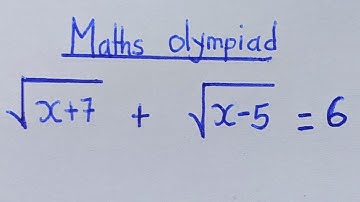 Maths olympiad
√x+7 + √x-5 = 6